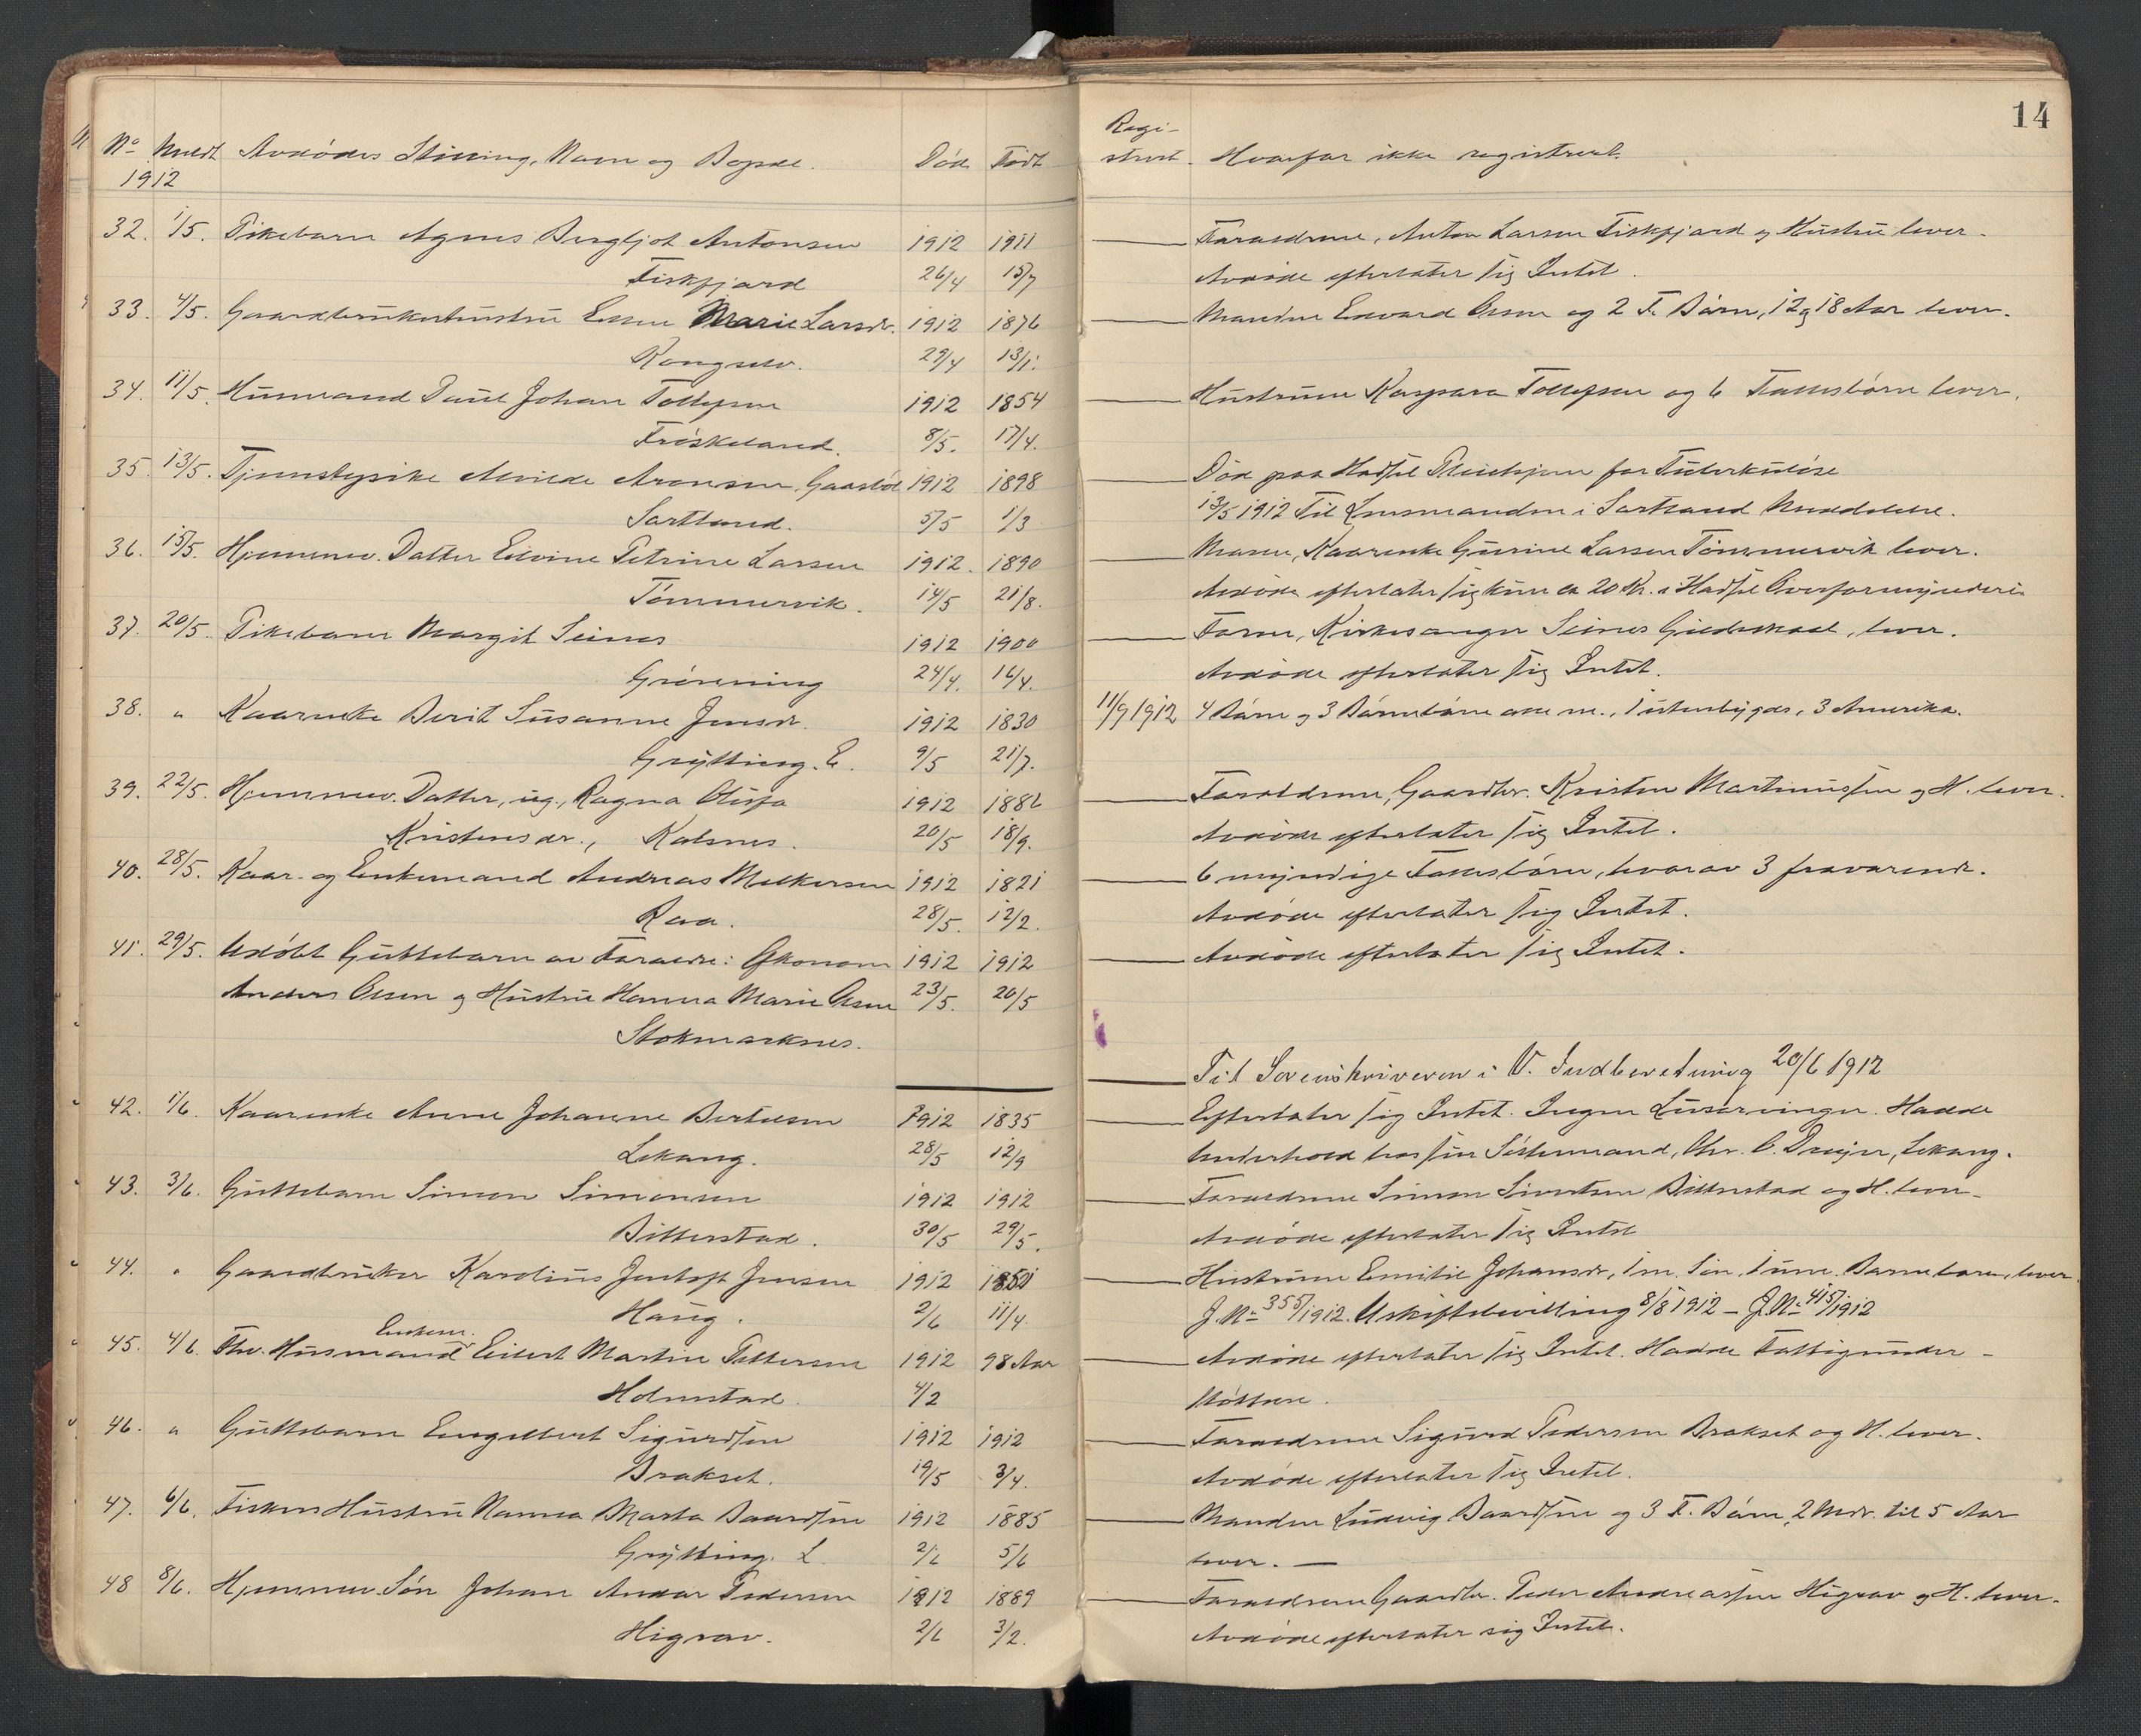 14
No Meldt Avdödes Stilling, Navn og Bopæl. Död Födt
1912
Regi-
strert. Hvorfor ikke registrert.
32. 1/5. Pikebarn Agnes Bergljot Antonsen 1912 1911
Fiskfjord 26/4 15/7
33. 4/5. Gaardbrukerhustru Marie Larsdr. 1912 1876
Kongselv. 29/4 13/1.
34. 11/5. Husmand Paul Johan Tollefsen 1912 1854
Fröskeland. 8/5. 17/4.
35. 13/5. Tjenestepike Alvilde Aronsen, 1912 1898
Sortland. 5/5 1/3
36. 15/5. Hjemmev. Datter Elvine Petrine Larsen 1912. 1890
Tömmervik. 14/5 21/8.
37. 20/5. Pikebarn Margit Seines 1912 1900
Grövening 24/4. 16/4.
38. " Kaarenke Berit Susanne Jensdr. 1912 1830
Grytting. E. 9/5 21/7.
39. 22/5. Hjemmev. Datter, ug., Ragna Olufa 1912 1886
Kristensdr., Kalsnes. 20/5 18/9.
40. 28/5. Kaar- og Enkemand Andreas Melkersen 1912 1821
Raa. 28/5. 12/2.
41. 29/5. Udöbt Guttebarn av Foreldre: Økonom 1912 1912
Anders Olsen og Hustru Hanna Marie Olsen 23/5. 20/5
Stokmarknes.
42. 1/6. Kaarenke Anne Johanne Bertelsen 1912 1835
Lekang. 28/5 12/9
43. 3/6. Guttebarn Simon Simonsen 1912 1912
Bitterstad. 30/5 29/5.
44. " Gaardbruker Karolius Jentoft Jensen 1912 1851
Haug. 2/6 11/4
Enkem.
45. 4/6. Fhv. Husmand Eilert Martin Pettersen 1912 98 Aar
Holmstad. 4/2
46. " Guttebarn Engelbert Sigurdsen 1912 1912
Brakset. 19/5 3/4.
47. 6/6. Fisker Hustru Hanna Marta Baardsen 1912 1885
Grytting. L. 2/6 5/6
48 8/6. Hjemmev. Sön Johan Andor Pedersen 1912 1889
Higrav. 2/6 3/2.
Forældrene, Anton Larsen Fiskfjord og Hustru lever.
Avdöde efterlater sig Intet.
Manden Edvard Olsen og 2 F. Börn, 12 og 18 Aar lever.
Hustruen Kaspara Tollefsen og 6 Fællesbörn lever.
Död paa Hadsel Pleiehjem for Tuberkulöse
13/5 1912 Til Lensmanden i Sortland Meddelelse.
Moren, Kaarenke Gurine Larsen Tömmervik lever.
Avdöde efterlater sig kun ca 20 Kr. i Hadsel Overformynderi
Faren, Kirkesanger Seines Gildeskaal, lever.
Avdöde efterlater sig Intet.
11/9 1912 4 Börn og 3 Börnebörn alle m., 1 utenbygds, 3 Amerika.
Forældrene, Gaardbr. Kristen Martinussen og H. lever.
Avdöde efterlater sig Intet.
6 myndige Fællesbörn, hvorav 3 fraværende.
Avdöde efterlater sig Intet.
Avdöde efterlater sig Intet.
Til Sorenskriveren i V. Indberetning 20/6 1912
Efterlater sig Intet. Ingen Livsarvinger. Hadde
Underhold hos sin Söstermand, Chr. C. Dreyer, Lekang.
Forældrene Simon Sivertsen Bitterstad og H. lever.
Avdöde efterlater sig Intet
Hustruen Emilie Johansdr, 1 m. Sön, 1 um. Barnebarn, lever.
J. No 355/1912. Uskiftebevilling 8/8 1912 – J. No 415/1912
Avdöde efterlater sig Intet. Hadde Fattigunder-
stöttelse.
Forældrene Sigurd Pedersen Brakset og H. lever.
Avdöde efterlater sig Intet.
Manden Ludvig Baardsen og 3 F. Börn, 2 Mdr. til 5 Aar
lever. —
Forældrene Gaardbr. Peder Andreassen Higrav og H. lever.
Avdöde efterlater sig Intet.